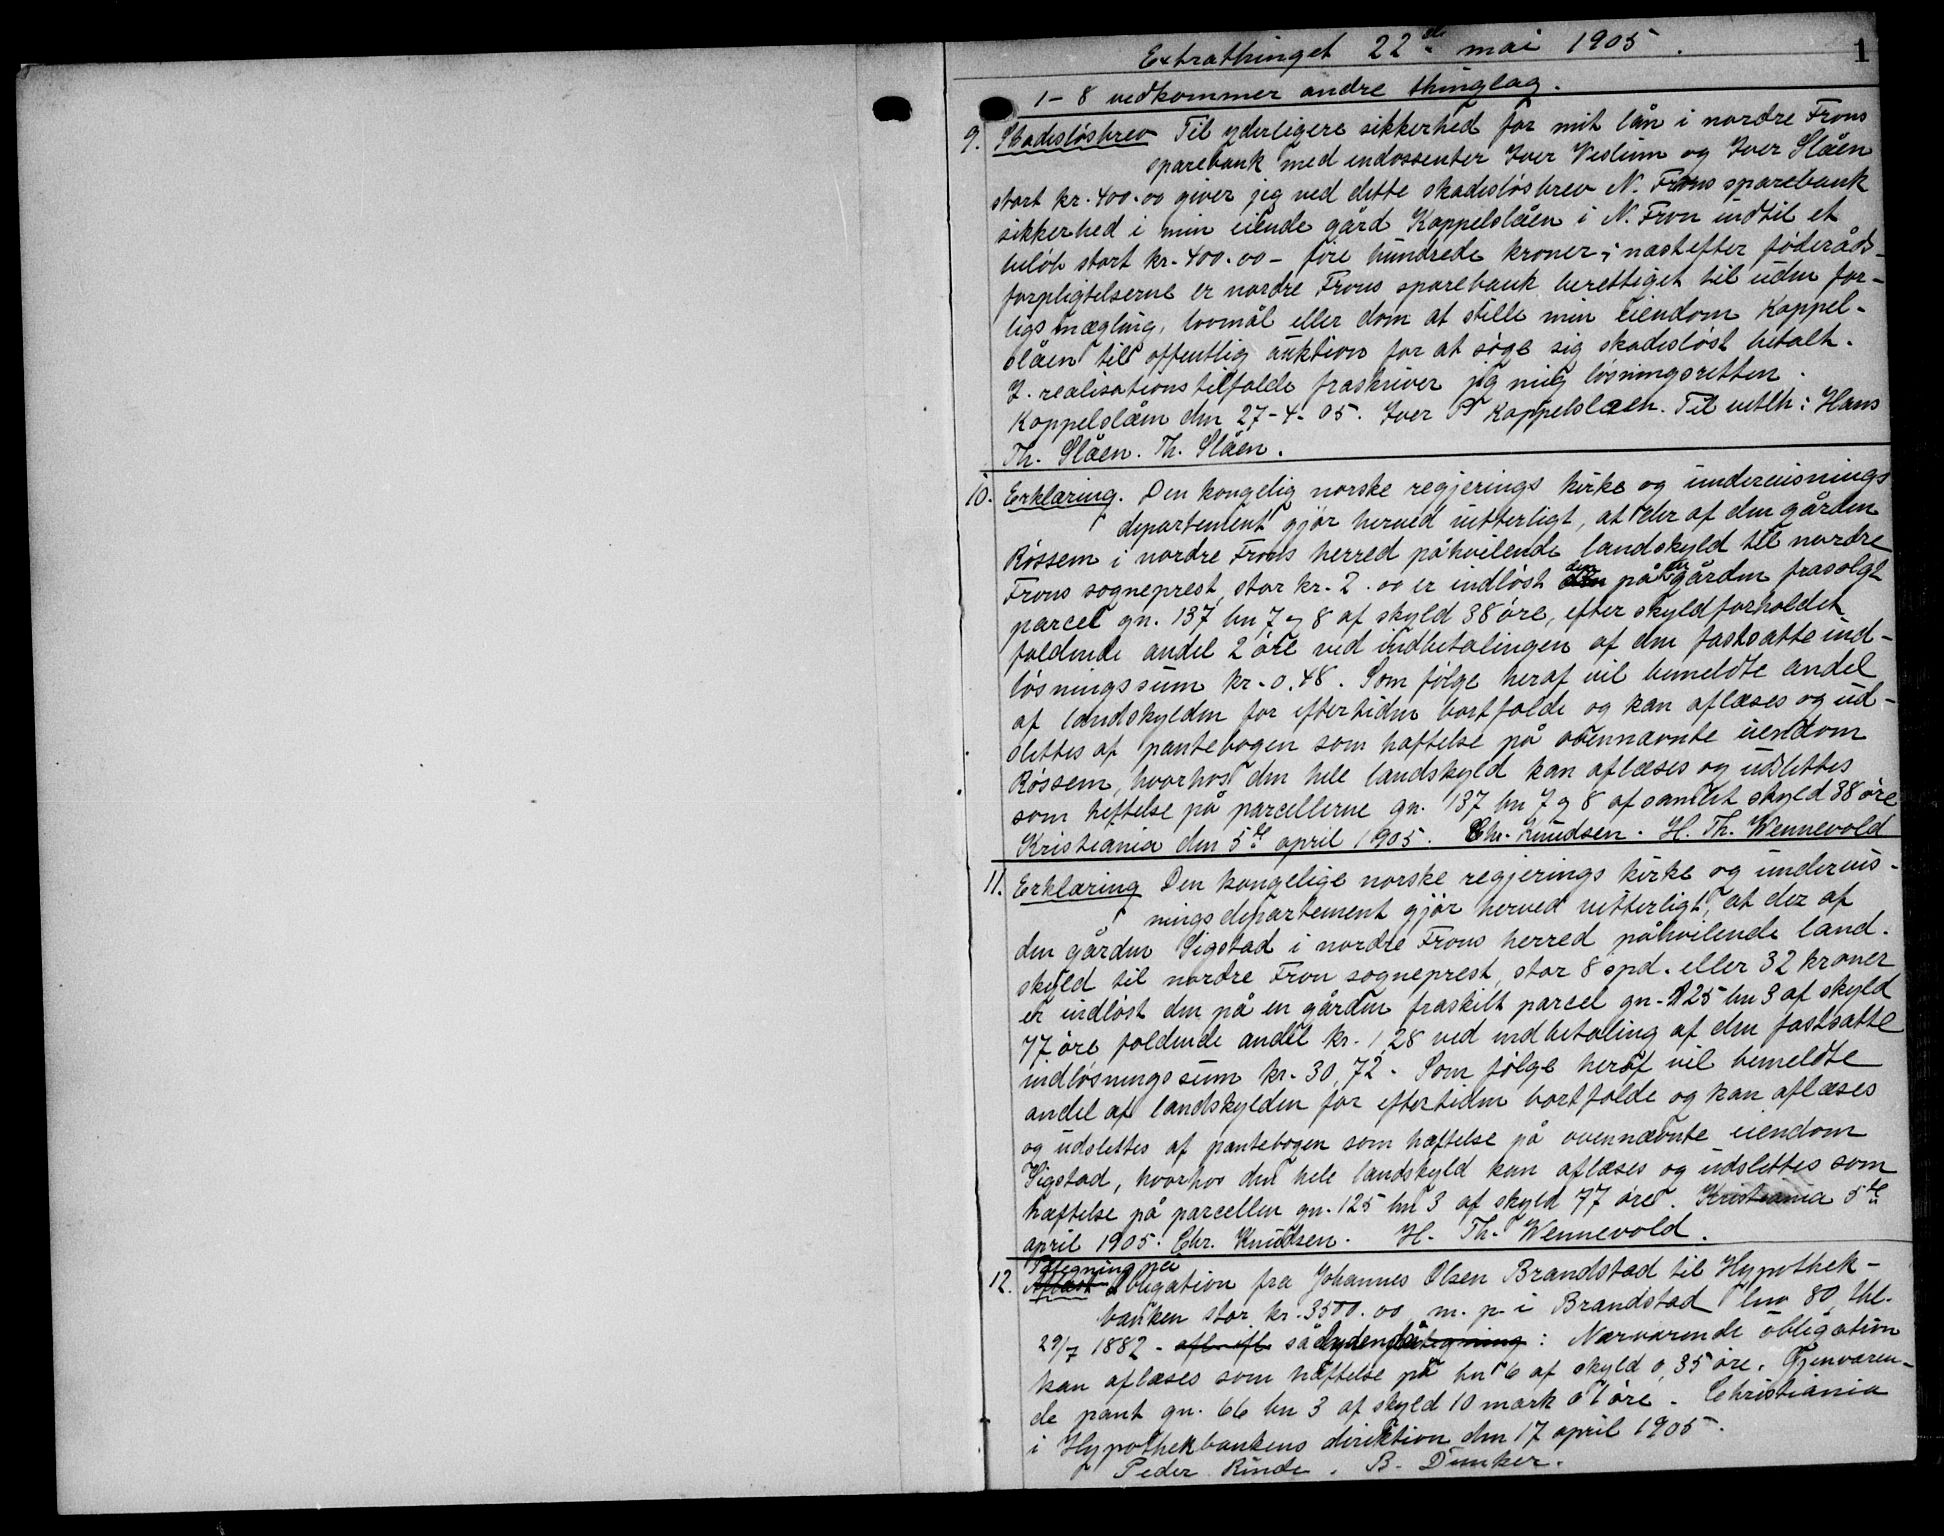 Extrathinget 22de mai 1905.
1
1-8 vedkommer andre thinglag.
9. Skadesløsbrev Til yderligere sikkerhed for mit lån i nordre Frons
sparebank med indossenter Iver Veslum og Iver Slåen
stort kr. 400.00 giver jeg ved dette skadesløsbrev N. Frons sparebank
sikkerhed i min eiende gård Kappelslåen i N. Fron indtil et
beløb stort kr. 400.00 - fire hundrede kroner; næstefter føderåds-
forpligtelserne er nordre Frons sparebank berettiget til uden for-
ligs mægling, lovmål eller dom at stille min eiendom Kappel-
slåen til offentlig auktion for at søge sig skadesløst betalt.
I realisationstilfælde fraskriver jeg mig løsningsretten.
Kappelslåen den 27-4-05. Iver P Kappelslaen. Til vitth: Hans
Th. Slåen. Th. Slåen.
10. Erklæring. Den kongelig norske regjerings kirke og undervisnings
departement gjør herved vitterligt, at der af den gården
Røssem i nordre Frons herred påhvilende landskyld til nordre
Frons sogneprest, stor kr. 2.00 er indløst den på en gården frasolgt
parcel gn. 137 bn 7 og 8 af skyld 38 øre, efter skyldforholdet
faldende andel 2 øre ved indbetalingen af den fastsatte ind-
løsningssum kr. 0.48. Som følge heraf vil bemeldte andel
af landskylden for eftertiden bortfalde og kan aflæses og ud-
slettes af pantebogen som hæftelse på ovennævnte eiendom
Røssem, hvorhos den hele landskyld kan aflæses og udslettes
som heftelse på parcellerne gn. 137 bn 7 og 8 af samlet skyld 38 øre
Kristiania den 5te april 1905. Chr. Knudsen. H. Th. Wennevold
11. Erklæring Den kongelige norske regjerings kirke og undervis-
ningsdepartement gjør herved vitterligt, at der af
den gården Sigstad i nordre Frons herred påhvilende land-
skyld til nordre Fron sogneprest, stor 8 spd. eller 32 kroner
er indløst den på en gården fraskilt parcel gn. 125 bn 3 af skyld
77 øre faldende andel kr. 1,28 ved indbetaling af den fastsatte
indløsningssum kr. 30,72. Som følge heraf vil bemeldte
andel af landskylden for eftertiden bortfalde og kan aflæses
og udslettes af pantebogen som hæftelse på ovennævnte eiendom
Sigstad, hvorhos den hele landskyld kan aflæses og udslettes som
hæftelse på parcellen gn. 125 bn 3 af skyld 77 øre. Kristiania 5te
april 1905. Chr. Knudsen. H. Th. Wennevold.
12. Påtegning på Obligation fra Johannes Olsen Brandstad til Hypothek-
banken stor kr. 3500.00 m. p. i Brandstad lnr 80, thl.
29/7 1882 - sålydende: Nærværende obligation
kan aflæses som hæftelse på bn 6 af skyld 0,35 øre. Gjenværen-
de pant gn. 66 bn 3 af skyld 10 mark 01 øre. Christiania
i Hypothekbankens direktion den 17 april 1905.
Peder Rinde. B. Dunker.